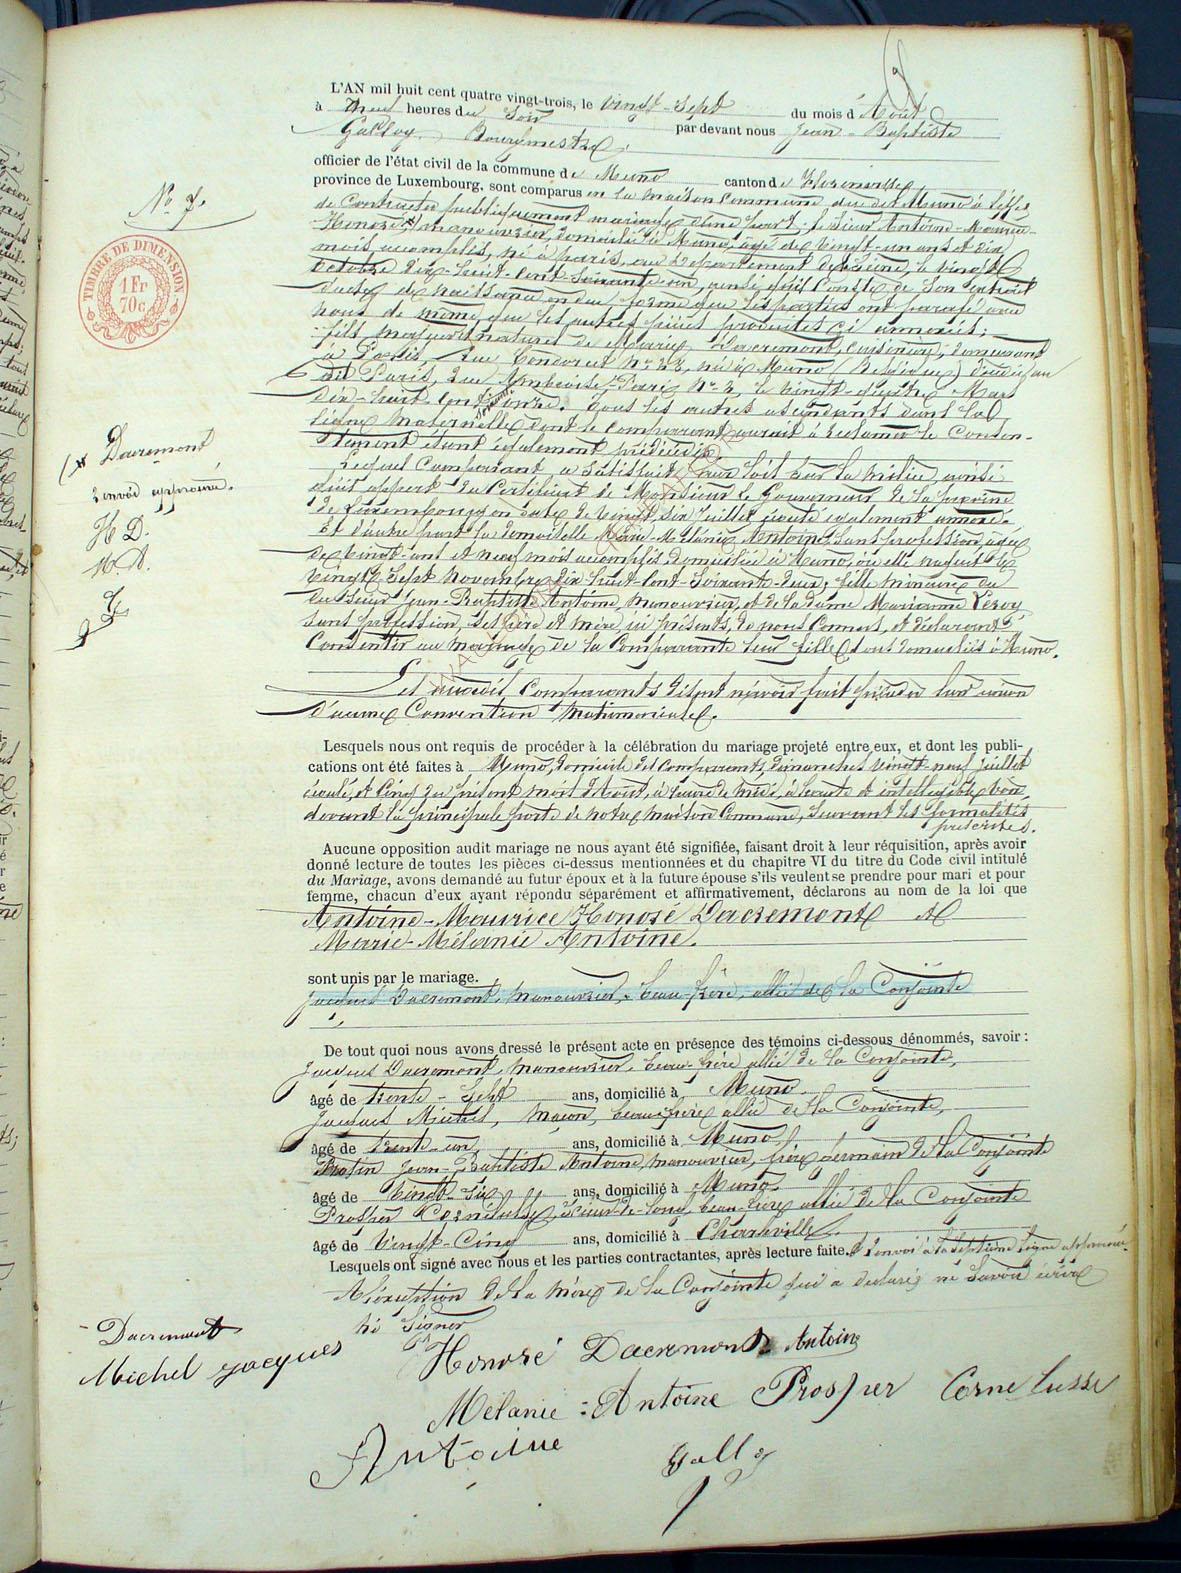 L'AN mil huit cent quatre vingt-trois, le vingt-sept du mois d'Août
à neuf heures du soir par devant nous Jean-Baptiste
Galloy, Bourgmestre,
officier de l'état civil de la commune de Muno canton de Florenville,
province de Luxembourg, sont comparus en la maison commune du dit Muno à l'effet
de contracter publiquement mariage d'une part, le sieur Antoine-Maurice-
Honoré manouvrier, domicilié à Muno, âgé de vingt-un ans et dix
mois accomplis, né à Paris, au département de la Seine, le vingt
octobre dix-huit-cent-soixante-un, ainsi qu'il conste de son extrait
d'acte de naissance en due forme que les parties ont paraphé avec
nous de même que les autres pièces produites ci annexées;
fils majeur naturel de Marie Dacremont, cuisinière, demeurant
à Paris, rue Condorcet N° né à Muno (Belgique) décédée au
dit Paris, rue Ambroise-Paré N° 2, le vingt-quatre Mars
dix-huit-cent Tous les autres ascendants dans la
ligne maternelle dont le comparant aurait à réclamer le consen-
tement étant également prédécédés.
Lequel comparant a satisfait aux lois sur la milice, ainsi
qu'il appert du certificat de Monsieur le Gouverneur de la province
de Luxembourg en date du vingt-six juillet écoulé également annexé.
Et d'autre part la demoiselle Marie-Mélanie Antoine, sans profession, âgée
de vingt-ans et neuf mois accomplis, domiciliée à Muno, où elle naquit le
vingt-sept Novembre dix huit-cent-soixante-deux, fille mineure du
du sieur Jean-Baptiste Antoine, manouvrier, et de la dame Marianne Leroy
sans profession, ses père et mère, ici présents, de nous connus, et déclarant
consentir au mariage de la comparante leur fille, tous domiciliés à Muno.
Les susdits comparants disent n'avoir fait précéder leur union
d'aucune convention matrimoniale.
Lesquels nous ont requis de procéder à la célébration du mariage projeté entre eux, et dont les publi-
cations ont été faites à Muno, domicile des comparants, dimanches vingt-neuf juillet
écoulé, et cinq du présent mois d'Août, à l'heure de midi, à haute et intelligible voix
devant la principale porte de notre maison commune, suivant les formalités
prescrites.
Aucune opposition audit mariage ne nous ayant été signifiée, faisant droit à leur réquisition, après avoir
donné lecture de toutes les pièces ci-dessus mentionnées et du chapitre VI du titre du Code civil intitulé
du Mariage, avons demandé au futur époux et à la future épouse s'ils veulent se prendre pour mari et pour
femme, chacun d'eux ayant répondu séparément et affirmativement, déclarons au nom de la loi que
Antoine-Maurice Honoré Dacremont et
Marie-Mélanie Antoine.
sont unis par le mariage.
Jacques Dacremont, manouvrier, beau-frère, allié de la Conjointe
De tout quoi nous avons dressé le présent acte en présence des témoins ci-dessous dénommés, savoir :
Jacques Dacremont, manouvrier, beau-frère allié de la Conjointe,
âgé de trente-sept ans, domicilié à Muno.
Jacques Michel, maçon, beau-frère allié de la Conjointe,
âgé de trente-un ans, domicilié à Muno
Jean-Baptiste Antoine, manouvrier, frère germain de la Conjointe
âgé de vingt-six ans, domicilié à Muno.
Prosper Cornelusse, scieur-de-long, beau-frère allié de la Conjointe
âgé de vingt-cinq ans, domicilié à Charleville.
Lesquels ont signé avec nous et les parties contractantes, après lecture faite. Renvoi à la septième ligne approuvé.
A l'exception de la mère de la Conjointe qui a déclaré ne savoir écrire
ni signer
N° 7.
TIMBRE DE DIMENSION
1 Fr
70c
(* Dacremont
renvoi approuvé.
H D.
M. A.
G
Dacremont
Michel Jacques
Honoré Dacremont Antoine
Mélanie Antoine Prosper Cornelusse
Antoine
Galloy